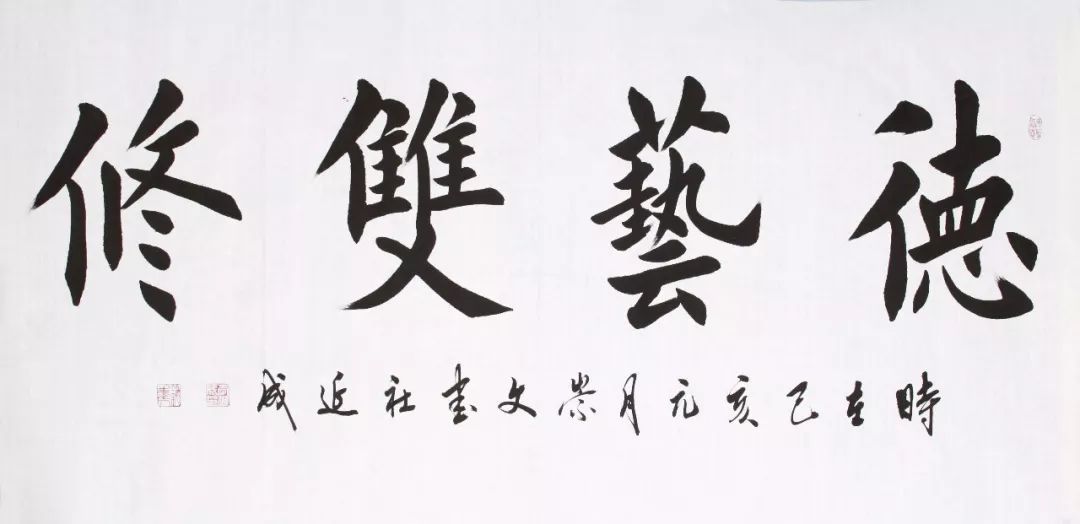 德藝雙修
時在己亥元月崇文書社近成